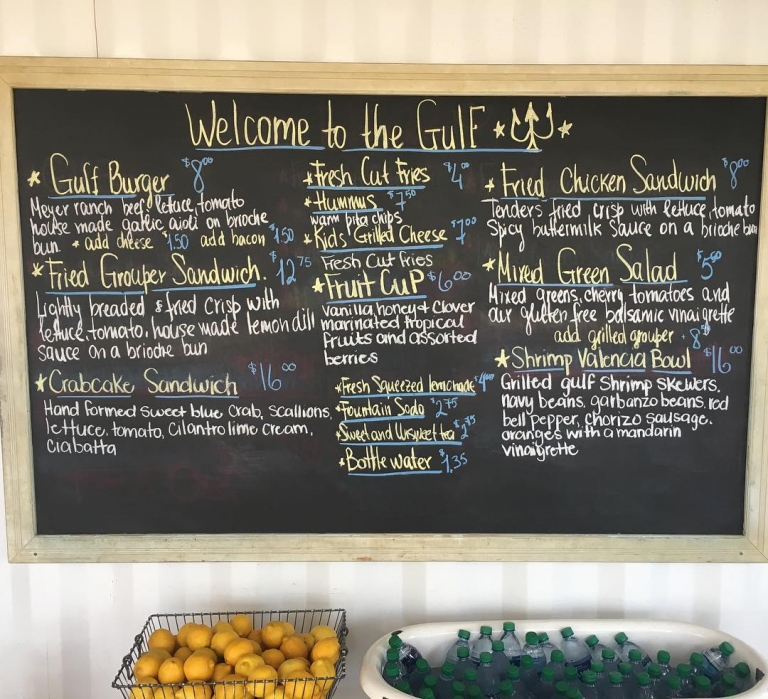 Welcome to the Gulf
Gulf Burger $8.00
Meyer ranch beef, lettuce, tomato
house made garlic aioli on brioche
bun * add cheese $1.50 add bacon $1.50
Fried Grouper Sandwich. $12.75
Lightly breaded & fried crisp with
lettuce, tomato, house made lemon dill
sauce on a brioche bun
Crabcake Sandwich $16.00
Hand formed sweet blue crab, scallions,
lettuce, tomato, cilantro lime cream,
ciabatta
Fresh Cut Fries $4.00
Hummus $7.50
warm pita chips
Kids' Grilled Cheese $7.00
Fresh Cut fries
Fruit Cup $6.00
vanilla, honey & clover
marinated tropical
fruits and assorted
berries
Fresh Squeezed lemonade $4.00
Fountain Soda $2.75
Sweet and Unsweet tea $2.75
Bottle water $1.35
Fried Chicken Sandwich $8.00
Tenders fried crisp with lettuce, tomato
Spicy buttermilk sauce on a brioche bun
Mixed Green Salad $5.00
Mixed greens, cherry tomatoes and
our gluten free balsamic vinaigrette
add grilled grouper
Shrimp Valencia Bowl $16.00
Grilled gulf shrimp skewers,
navy beans, garbanzo beans, red
bell pepper, chorizo sausage,
oranges with a mandarin
vinaigrette